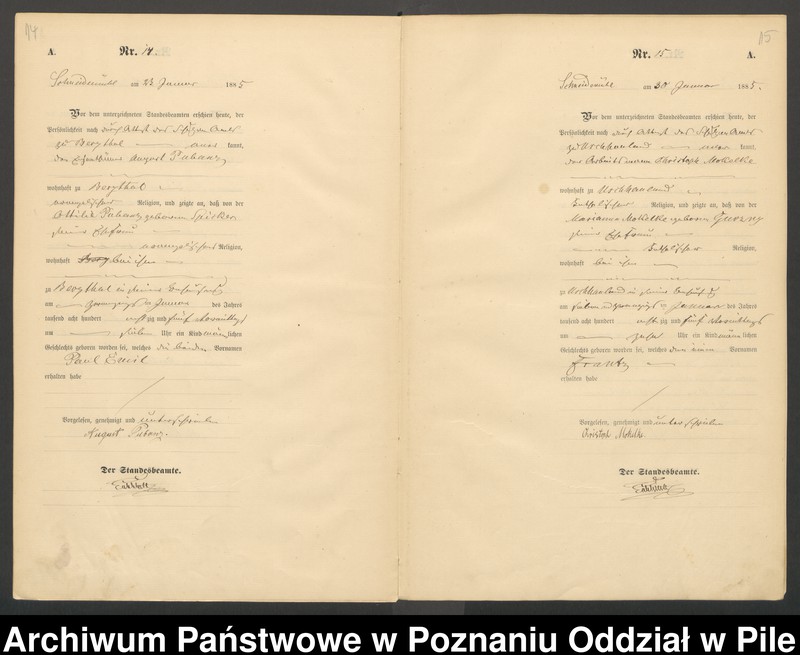 14
A.
Nr. 14.
Schneidemühl am 23 Januar 1885
Vor dem unterzeichneten Standesbeamten erschien heute, der
Persönlichkeit nach durch Attest des Schulzen Amts
zu Bergthal aner kannt,
der Eigenthümer August Pubanz
wohnhaft zu Bergthal
evangelischer Religion, und zeigte an, daß von der
Pubanz geborenen
seiner Ehefrau
evangelischer Religion,
wohnhaft bei ihm
zu Bergthal in seiner Behausung
am zwanzigsten Januar des Jahres
tausend acht hundert acht zig und fünf Vormittags
um sieben Uhr ein Kind männ lichen
Geschlechts geboren worden sei, welches die beiden Vornamen
Paul Emil
erhalten habe
Vorgelesen, genehmigt und unterschrieben
August Pubanz.
Der Standesbeamte.
15
Nr. 15
A.
Schneidemühl am 30 Januar 1885.
Vor dem unterzeichneten Standesbeamten erschien heute, der
Persönlichkeit nach durch Attest des Schulzen Amts
zu Uschhauland aner kannt,
der Arbeitsmann Christoph Mokelke
wohnhaft zu Uschhauland
katholischer Religion, und zeigte an, daß von der
Marianna Mokelke geborenen
seiner Ehefrau
katholischer Religion,
wohnhaft bei ihm
zu Uschhauland in seiner Behausung
am sieben und zwanzigsten Januar des Jahres
tausend acht hundert acht zig und fünf Vormittags
um zehn Uhr ein Kind männ lichen
Geschlechts geboren worden sei, welches den einen Vornamen
Frantz
erhalten habe
Vorgelesen, genehmigt und unterschrieben
Christoph Mokelke
Der Standesbeamte.
Archiwum Państwowe w Poznaniu Oddział w Pile